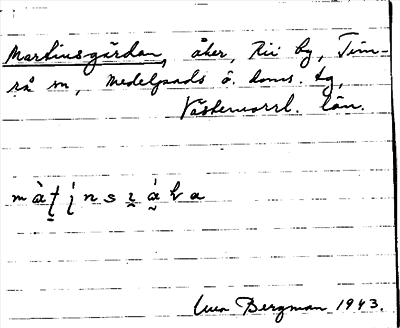 Martinsgården, åker, Rii by, Tim-
rå sn, Medelpads ö. doms. tg,
Västernorrl. län.
Bergman 1943.